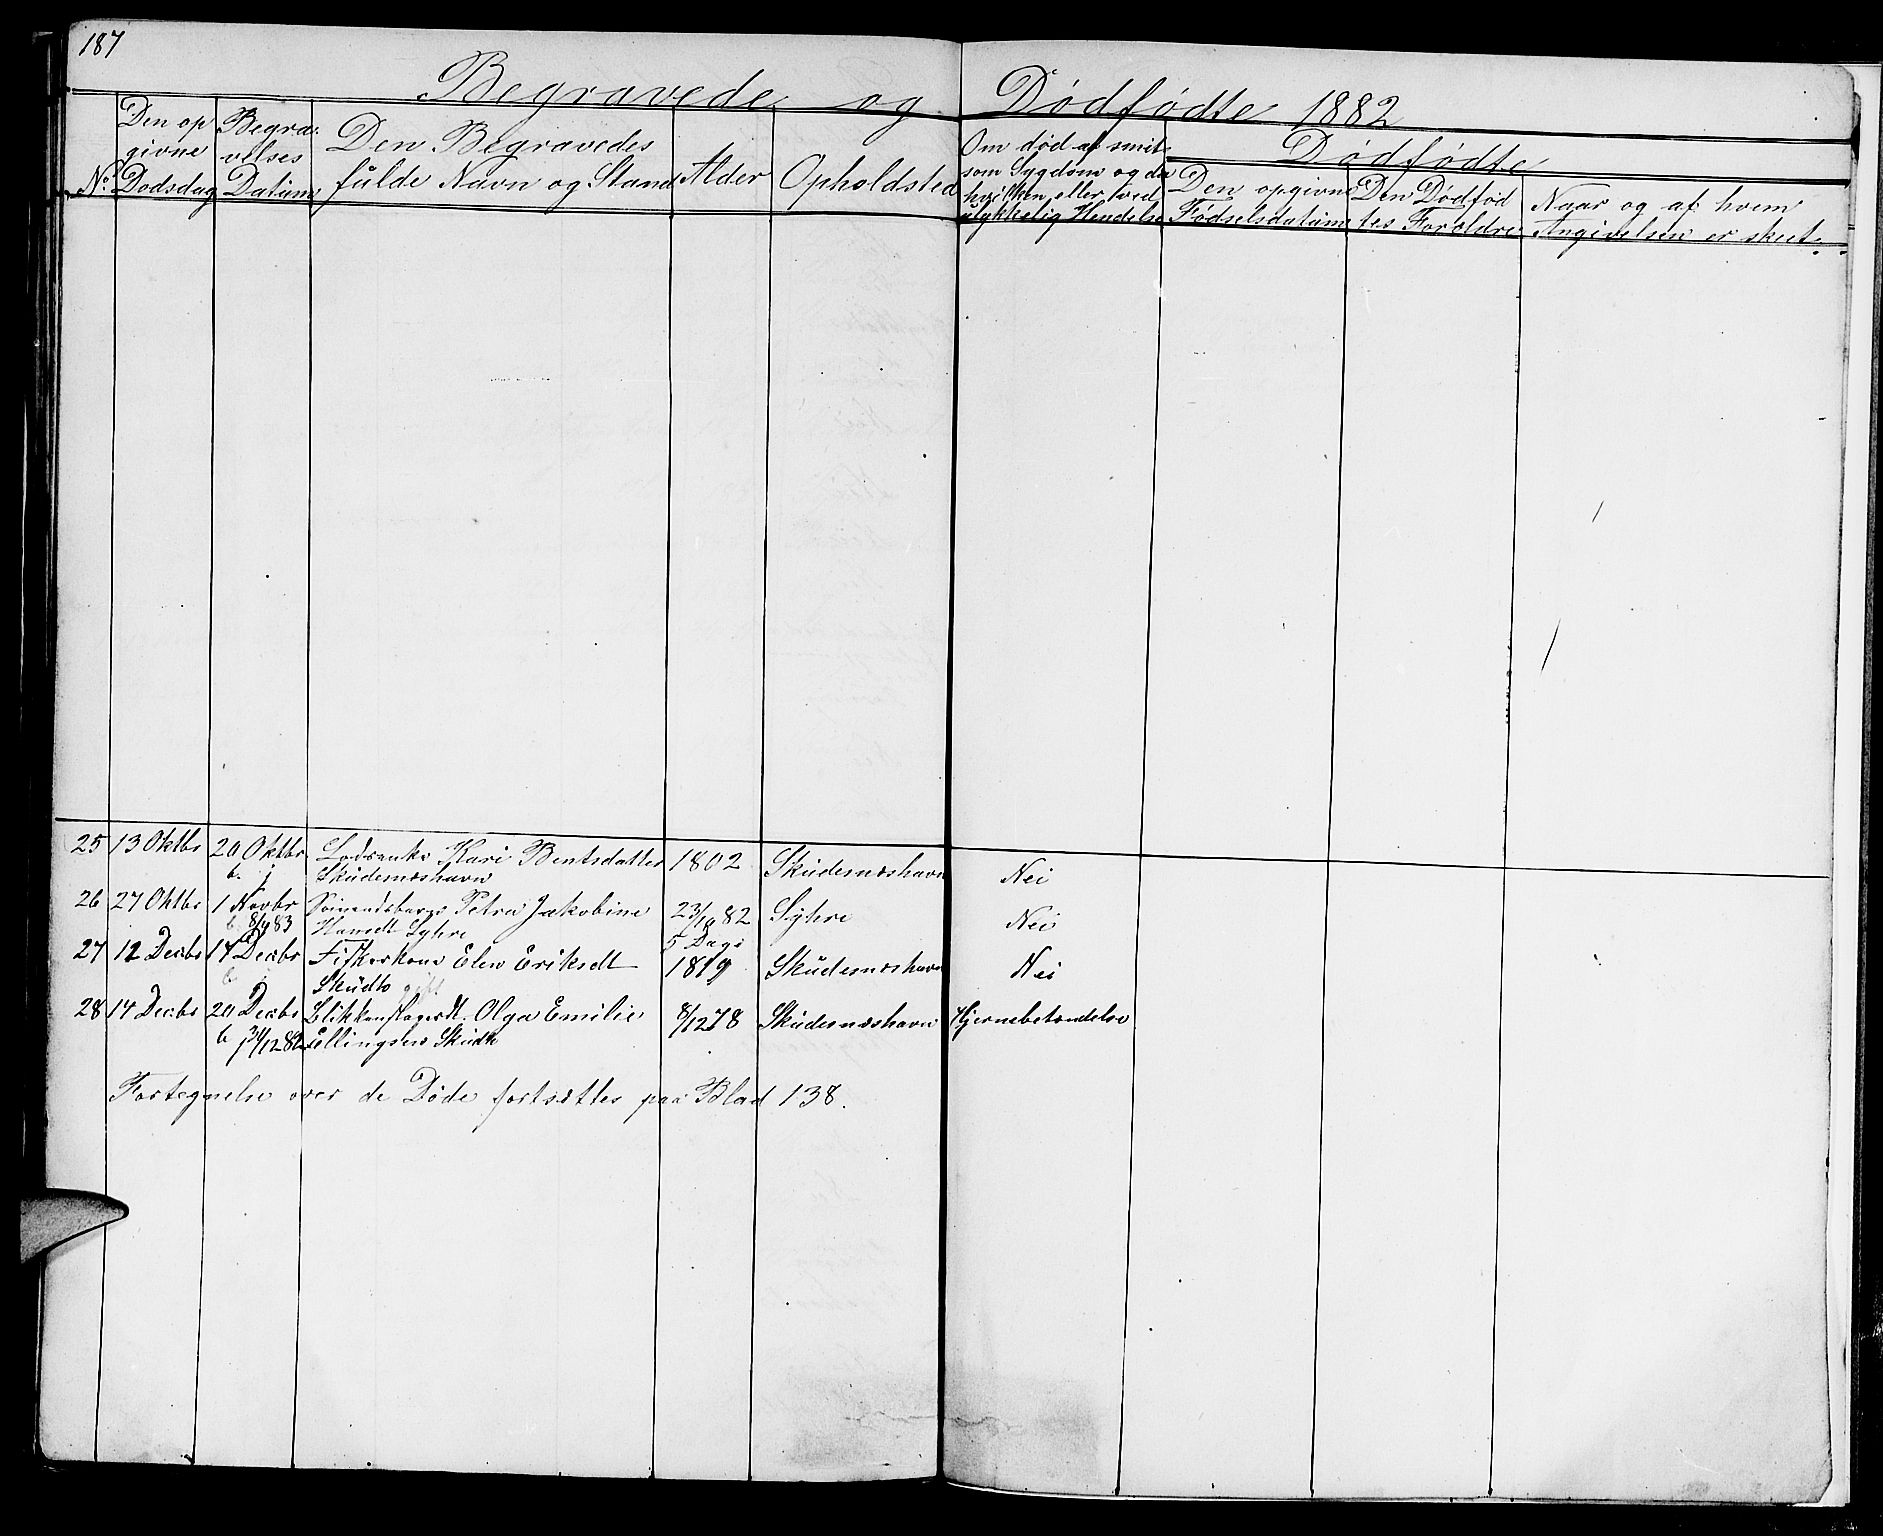 187
Begravede og Dødfødte 1882
No. Den opgivne Dodsdag
Begravelses Datum
Den Begravedes fulde Navn og Stand
Alder
Opholdsted
Om død af smitsom Sygdom og da hvilken, eller ved ulykkelig Hendelse
Dødfødte
Den opgivne Fødselsdatum
Den Dødfødtes Forældre
Naar og af hvem Angivelsen er skeet.
25 13 Oktbr 20 Oktbr Lodsenke Kari Bentsdatter 1802 Skudesneshavn Nei
Skudesneshavn
26 27 Oktbr 1 Novbr Petra Jakobine 23/10 82 Syhre Nei
Hansdt Syhre 5 Dage
27 12 Decbr 17 Decbr Fiskerkone Elen Eriksdt 1819 Skudesneshavn Nei
Skudes gift
28 14 Decbr 20 Decbr Blikkenslagerdt. Olga Emilie 8/12 78 Skudesneshavn Hjernebetændelse
Ellingsen
Fortegnelse over de Døde fortsættes paa Blad 138.